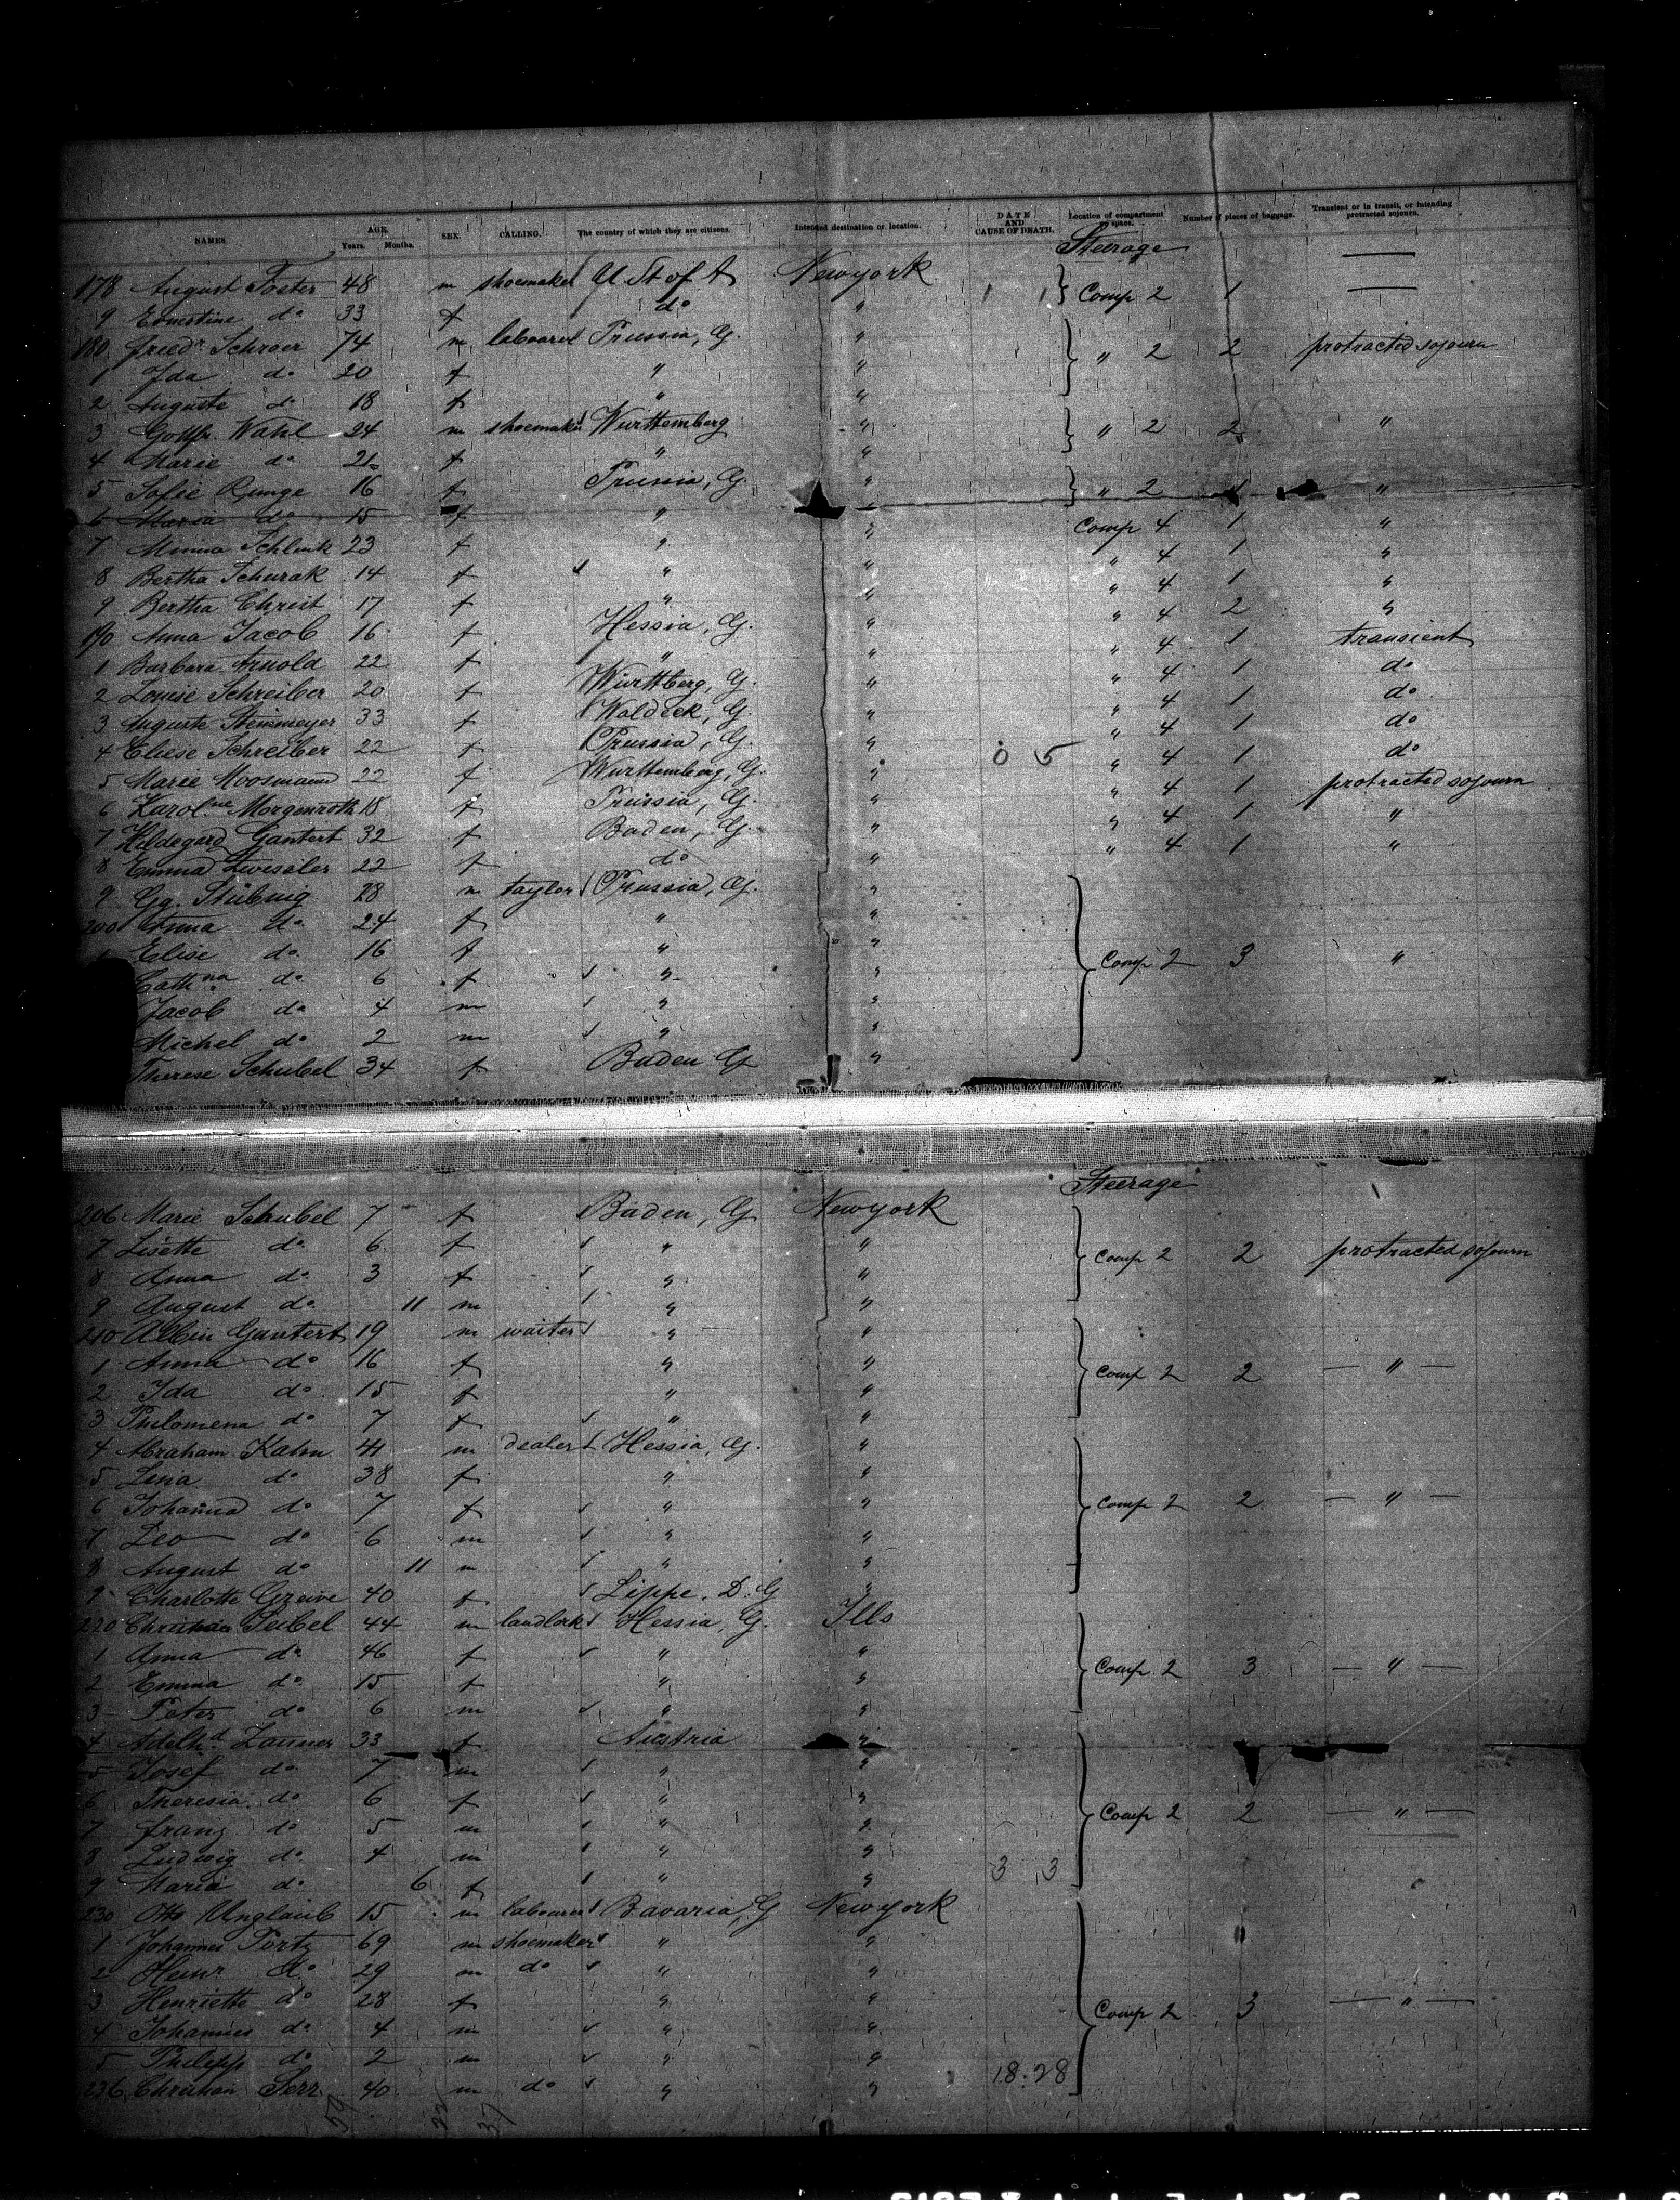 NAMES. AGE. Years. Months. SEX. CALLING. The country of which they are citizens. Intended destination or location. DATE AND CAUSE OF DEATH. Location of compartment or space. Number of pieces of baggage. Transient or in transit, or intending protracted sojourn.
Steerage
178 August Foster 48 m shoemaker U St of A Newyork Comp 2 1 —
9 Ernestine do 33 f do " —
180 Friedr Schroer 74 m labourer Prussia, G. " " 2 2 protracted sojourn
1 Ida do 20 f " "
2 Auguste do 18 f " "
3 Gottfr. Wahl 24 m shoemaker Württemberg " " 2 2 "
4 Marie do 21 f " "
5 Sofie Runge 16 f Prussia, G. " " 2 1 "
6 Maria do 15 f " "
7 Minna Schlenk 23 f " " Comp 4 1 "
8 Bertha Schurak 14 f " " " 4 1 "
9 Bertha Christ 17 f " " " 4 1 "
190 Anna Jacob 16 f Hessia, G. " " 4 2 "
1 Barbara Arnold 22 f " " " 4 1 transient
2 Louise Schreiber 20 f Württberg, G. " " 4 1 do
3 Auguste Steinmeyer 33 f Waldeck, G. " " 4 1 do
4 Eliese Schreiber 22 f Prussia, G. " " 4 1 do
5 Marie Moosmann 22 f Württemberg, G. " 0 5 " 4 1 do
6 Karolne Morgenroth 18 f Prussia, G. " " 4 1 protracted sojourn
7 Hildegard Gantert 32 f Baden, G. " " 4 1 "
8 Emma 22 f do " " 4 1 "
9 Gg. Stübing 28 m taylor Prussia, G. "
200 Anna do 24 f " "
1 Elise do 16 f " " Comp 2 3 "
Cathna do 6 f " "
Jacob do 4 m " "
Michel do 2 m " "
Therese Schubel 34 f Baden G "
Steerage
206 Marie Schubel 7 f Baden, G Newyork
7 Lisette do 6 f " " Comp 2 2 protracted sojourn
8 Anna do 3 f " "
9 August do 11 m " "
210 Albin Gantert 19 m waiter " "
1 Anna do 16 f " " Comp 2 2 — " —
2 Ida do 15 f " "
3 Philomena do 7 f " "
4 Abraham Kahn 41 m dealer Hessia, G. "
5 Lena do 38 f " "
6 Johanna do 7 f " " Comp 2 2 — " —
7 Leo do 6 m " "
8 August do 11 m " "
9 Charlotte Greive 40 f Lippe. D. G "
220 Christian Seibel 44 m Hessia, G. Ills
1 Anna do 46 f " " Comp 2 3 — " —
2 Emma do 15 f " "
3 Peter do 6 m " "
4 Adelhd Zauner 33 f Austria "
5 Josef do 7 m " "
6 Theresia do 6 f " "
7 Franz do 5 m " " Comp 2 2 — " —
8 Ludwig do 4 m " "
9 Maria do 6 f " " 3 3
230 Otto Unglaub 15 m labourer Bavaria, G Newyork
1 Johannes Portz 69 m shoemaker " "
2 Heinr do 29 m do " "
3 Henriette do 28 f " " Comp 2 3 — " —
4 Johannes do 4 m " "
5 Philipp do 2 m " "
236 Christian Serr 40 m do " " 18.28